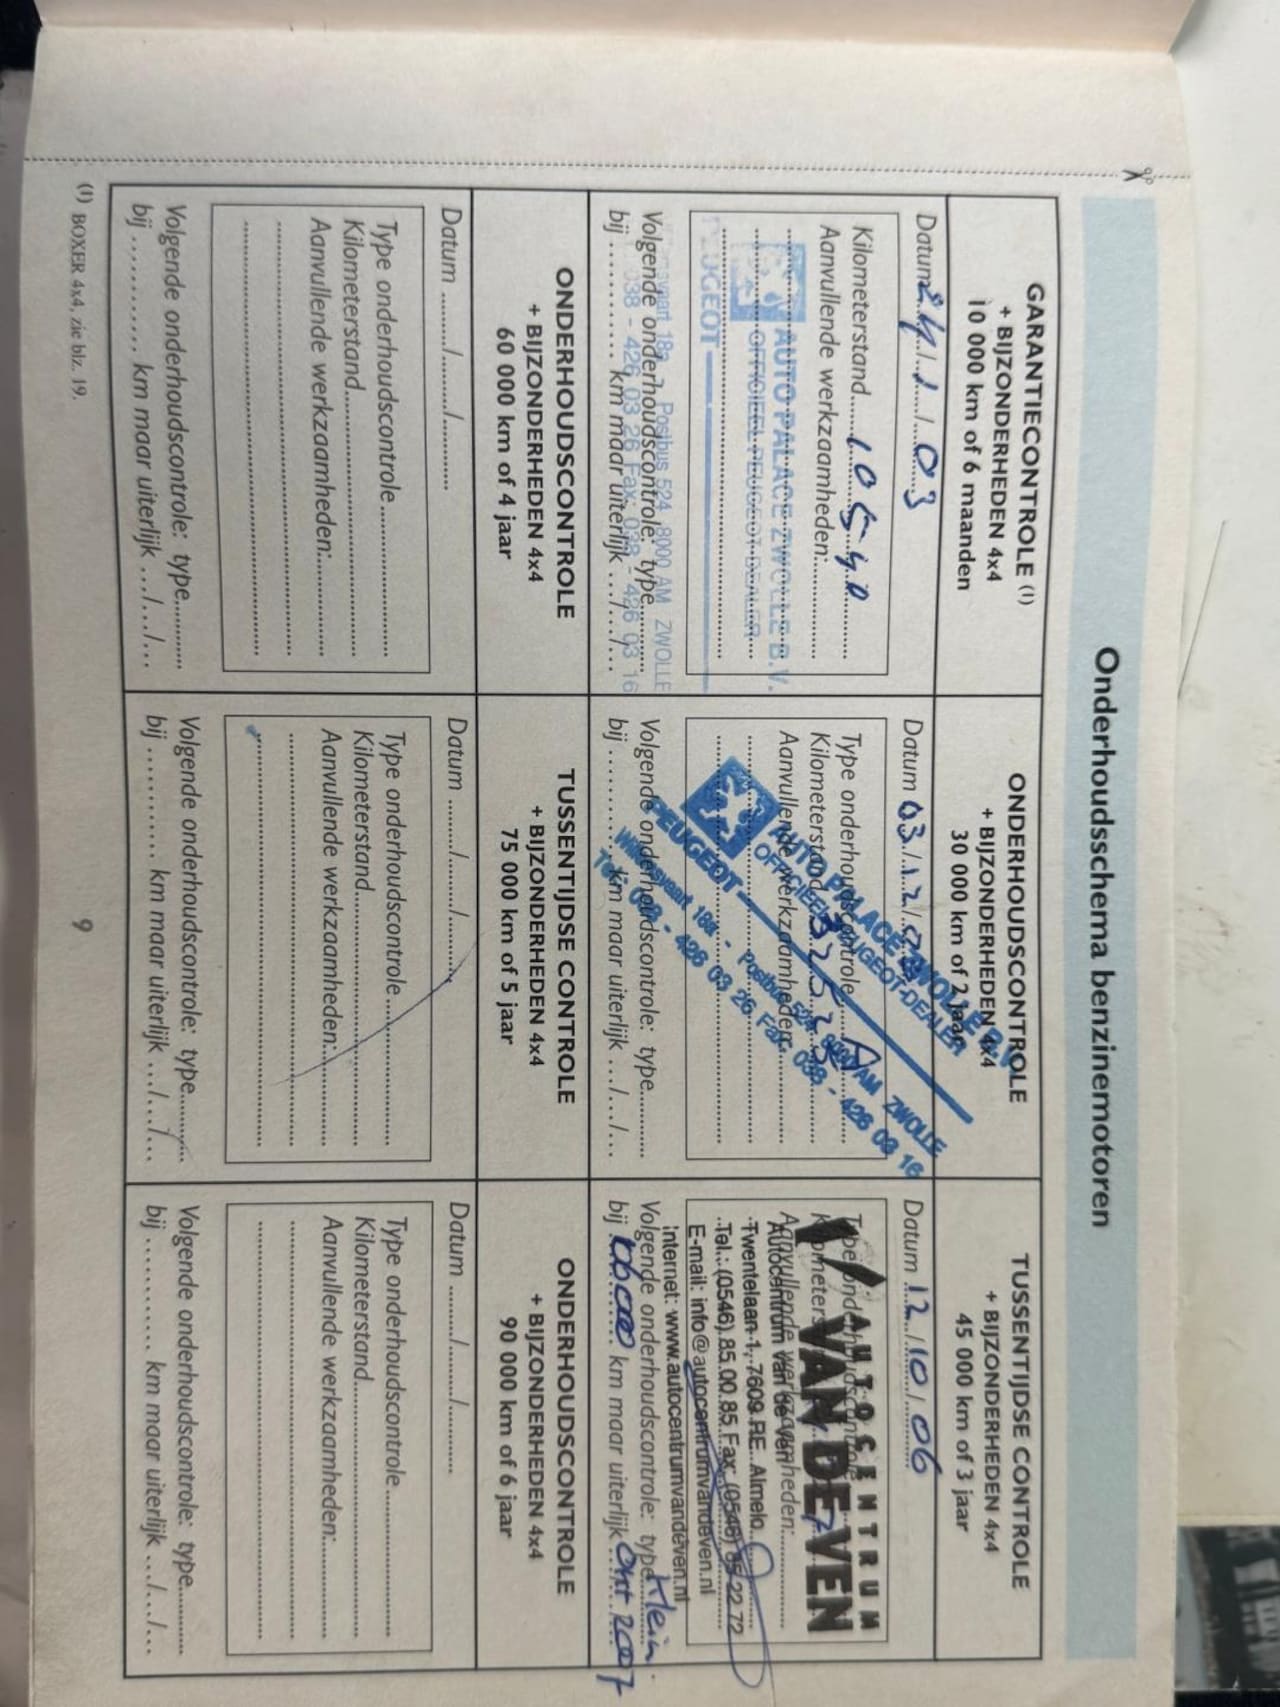 Onderhoudsschema benzinemotoren
GARANTIECONTROLE (1)
+ BIJZONDERHEDEN 4x4
10 000 km of 6 maanden
Datum 24/1/03
Kilometerstand 10540
Aanvullende werkzaamheden:
AUTO PALACE ZWOLLE B.V.
OFFICIEEL PEUGEOT-DEALER
PEUGEOT
18a - Postbus 524 8000 AM ZWOLLE
Volgende onderhoudscontrole: type
038 - 426 03 26 Fax: 038 - 426 03 16
bij .......... km maar uiterlijk .../.../...
ONDERHOUDSCONTROLE
+ BIJZONDERHEDEN 4x4
30 000 km of 2 jaar
Datum 03/12/03
Type onderhoudscontrole A
Kilometerstand
Aanvullende werkzaamheden:
AUTO PALACE ZWOLLE B.V.
OFFICIEEL PEUGEOT-DEALER
PEUGEOT
18a - Postbus 524 8000 AM ZWOLLE
Tel. 038 - 426 03 26 Fax: 038 - 426 03 16
Volgende onderhoudscontrole: type
bij .......... km maar uiterlijk .../.../...
TUSSENTIJDSE CONTROLE
+ BIJZONDERHEDEN 4x4
45 000 km of 3 jaar
Datum 12/10/06
Type onderhoudscontrole
Kilometerstand
Aanvullende werkzaamheden:
AUTOCENTRUM
VAN DE VEN
Autocentrum van de Ven
Twentelaan 1, 7609 RE Almelo
Tel.: (0546) 85 00 85 Fax: (0546) 85 22 72
E-mail: info@autocentrumvandeven.nl
internet: www.autocentrumvandeven.nl
Volgende onderhoudscontrole: type klein
bij km maar uiterlijk okt 2007
ONDERHOUDSCONTROLE
+ BIJZONDERHEDEN 4x4
60 000 km of 4 jaar
Datum ......../......../..........
Type onderhoudscontrole
Kilometerstand
Aanvullende werkzaamheden:
Volgende onderhoudscontrole: type
bij .......... km maar uiterlijk .../.../...
TUSSENTIJDSE CONTROLE
+ BIJZONDERHEDEN 4x4
75 000 km of 5 jaar
Datum ......../......../..........
Type onderhoudscontrole
Kilometerstand
Aanvullende werkzaamheden:
Volgende onderhoudscontrole: type
bij .......... km maar uiterlijk .../.../...
ONDERHOUDSCONTROLE
+ BIJZONDERHEDEN 4x4
90 000 km of 6 jaar
Datum ......../......../..........
Type onderhoudscontrole
Kilometerstand
Aanvullende werkzaamheden:
Volgende onderhoudscontrole: type
bij .......... km maar uiterlijk .../.../...
(1) BOXER 4x4, zie blz. 19.
9